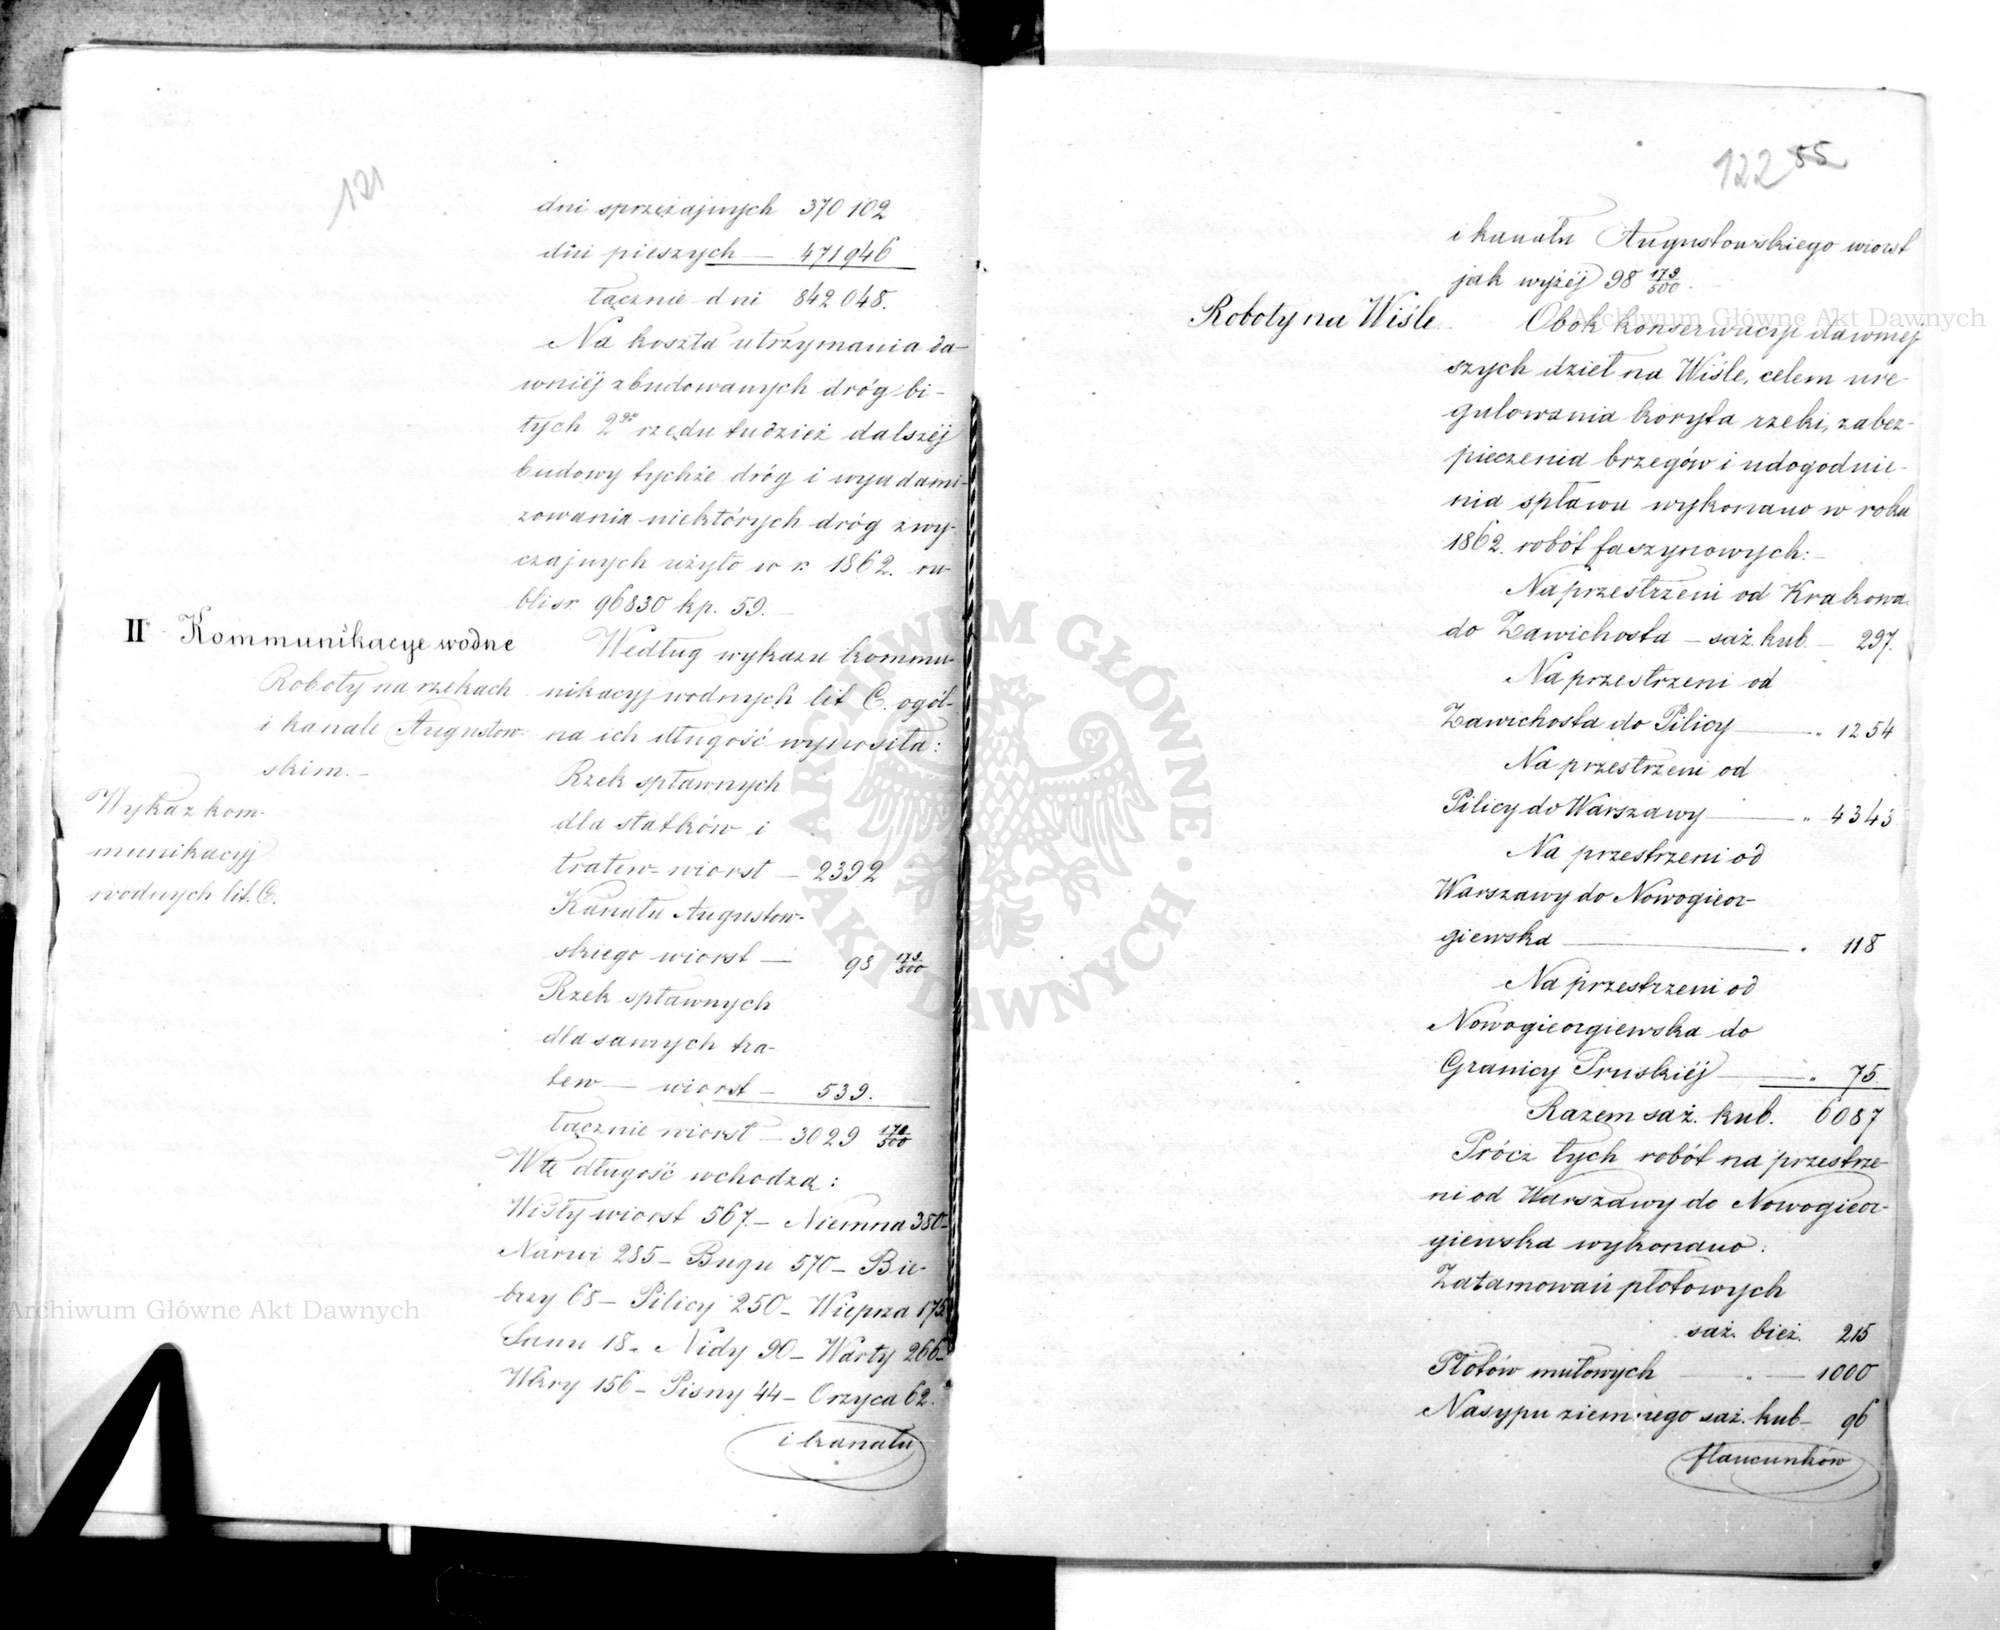 121
dni sprzężajnych 370 102
dni pieszych — 471946
łącznie dni 842 048.
Na koszta utrzymania da-
wniéj zbudowanych dróg bi-
tych 2go rzędu tudzież dalszéj
budowy tychże dróg i wyadami-
zowania niektórych dróg zwy-
czajnych użyto w r. 1862. ru-
bli sr. 96830 kp. 59. —
II Kommunikacye wodne
Roboty na rzekach
i kanale Augustow-
skim. —
Wykaz kom-
munikacyj
wodnych lit. C.
Według wykazu kommu-
nikacyj wodnych lit C. ogól-
na ich długość wynosiła:
Rzek spławnych
dla statków i
tratew - wiorst — 2392
Kanału Augustow-
skiego wiorst — 98 173/500
Rzek spławnych
dla samych tra-
tew — wiorst — 539.
łącznie wiorst — 3029 173/500
W tę długość wchodzą:
Wisły wiorst 567. — Niemna 380 —
Narwi 285 — Bugu 570 — Bie-
brzy 68 — Pilicy 250 — Wieprza 175.
Sanu 18 — Nidy 90 — Warty 266 —
Wkry 156 — Pisny 44 — Orzyca 62.
i kanału
122 55
i kanału Augustowskiego wiorst
jak wyżéj 98 173/500.
Roboty na Wiśle
Obok konserwacyi dawniej
szych dzieł na Wiśle, celem ure-
gulowania koryta rzeki, zabez-
pieczenia brzegów i udogodnie-
nia spławu wykonano w roku
1862. robót faszynowych: —
Na przestrzeni od Krakowa
do Zawichosta — saż. kub. — 297.
Na przestrzeni od
Zawichosta do Pilicy — „ 1254
Na przestrzeni od
Pilicy do Warszawy — „ 4343
Na przestrzeni od
Warszawy do Nowogieor-
giewska — „ 118
Na przestrzeni od
Nowogieorgiewska do
Granicy Pruskiéj — „ 75.
Razem saż. kub. 6087
Prócz tych robót na przestrze-
ni od Warszawy do Nowogieor-
giewska wykonano:
Zatamowań płotowych
saż. bież. 215
Płotów mułowych — „ — 1000
Nasypu ziemnego saż. kub — 96
flaucunków
Archiwum Główne Akt Dawnych
Archiwum Główne Akt Dawnych
· ARCHIWUM GŁÓWNE · AKT DAWNYCH